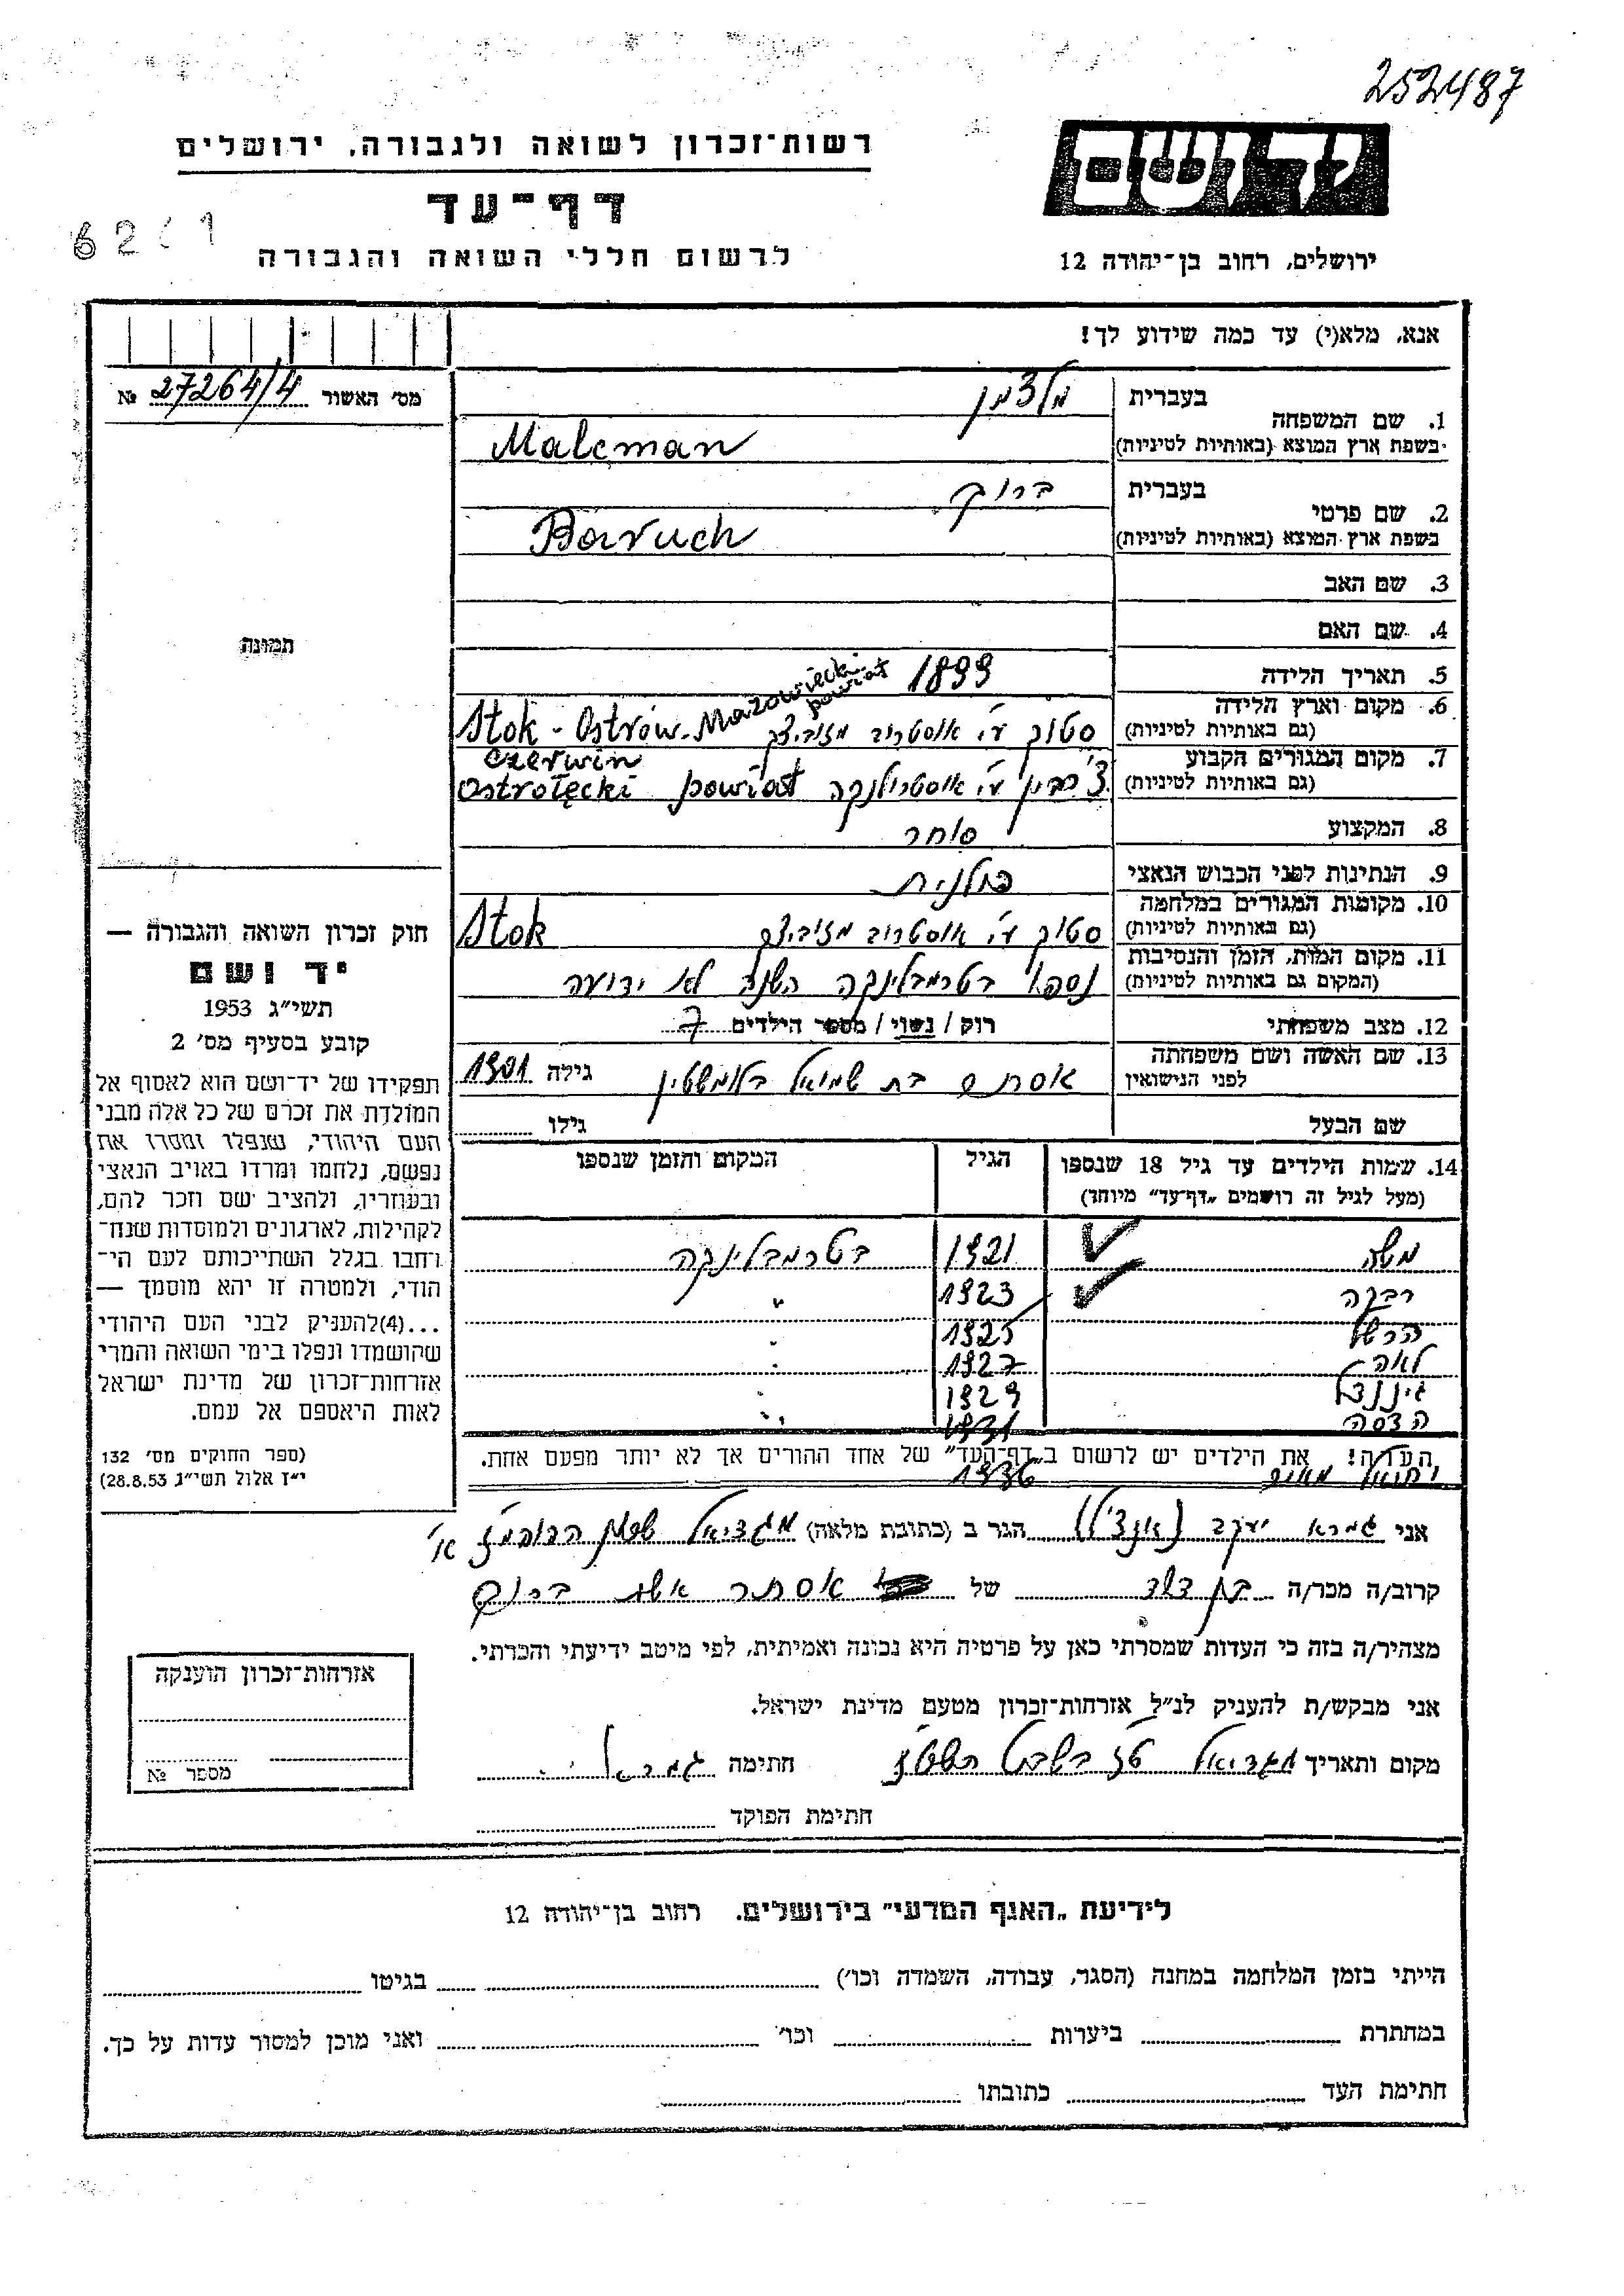 252487
ידושם
רשות־זכרון לשואה ולגבורה, ירושלים
דף־עד
לרשום חללי השואה והגבורה
ירושלים, רחוב בן־יהודה 12
אנא, מלא(י) עד כמה שידוע לך!
מס' האשור 27264/4 №
בעברית מלצמן
1. שם המשפחה
בשפת ארץ המוצא (באותיות לטיניות) Malcman
בעברית ברוך
2. שם פרטי
בשפת ארץ המוצא (באותיות לטיניות) Baruch
3. שם האב
4. שם האם
תמונה
5. תאריך הלידה 1899
6. מקום וארץ הלידה
(גם באותיות לטיניות) סטוק ע"י אוסטרוב מזוביצק Stok - Ostrów - Mazowiecki powiat
7. מקום המגורים הקבוע
(גם באותיות לטיניות) צ'רבין ע"י אוסטרולנקה Czerwin Ostrołęcki powiat
8. המקצוע סוחר
9. הנתינות לפני הכבוש הנאצי פולנית
10. מקומות המגורים במלחמה
(גם באותיות לטיניות) סטוק ע"י אוסטרוב מזוביצק Stok
11. מקום המות, הזמן והנסיבות
(המקום גם באותיות לטיניות) נספו בטרמבלינקה השנה לא ידועה
12. מצב משפחתי רוק / נשוי / מספר הילדים 7
13. שם האשה ושם משפחתה
לפני הנישואין אסתר בת שמואל גילה 1901
שם הבעל גילו
14. שמות הילדים עד גיל 18 שנספו הגיל המקום והזמן שנספו
(מעל לגיל זה רושמים „דף־עד" מיוחד)
משה 1921 בטרמבלינקה
רבקה 1923 "
הרשל 1925 "
לאה 1927 "
1929 "
הדסה 1931 "
הערה! את הילדים יש לרשום ב„דף־העד" של אחד ההורים אך לא יותר מפעם אחת.
חוק זכרון השואה והגבורה —
יד ושם
תשי"ג 1953
קובע בסעיף מס' 2
תפקידו של יד־ושם הוא לאסוף אל
המולדת את זכרם של כל אלה מבני
העם היהודי, שנפלו ומסרו את
נפשם, נלחמו ומרדו באויב הנאצי
ובעוזריו, ולהציב שם וזכר להם,
לקהילות, לארגונים ולמוסדות שנח־
רחבו בגלל השתייכותם לעם הי־
הודי, ולמטרה זו יהא מוסמך —
...(4)להעניק לבני העם היהודי
שהושמדו ונפלו בימי השואה והמרי
אזרחות־זכרון של מדינת ישראל
לאות היאספם אל עמם.
(ספר החוקים מס' 132
י"ז אלול תשי"ג 28.8.53)
אני גמרא יעקב הגר ב (כתובת מלאה) מגדיאל
קרוב/ה מכר/ה בן דוד של אסתר אשת ברוך
מצהיר/ה בזה כי העדות שמסרתי כאן על פרטיה היא נכונה ואמיתית, לפי מיטב ידיעתי והכרתי.
אני מבקש/ת להעניק לנ"ל אזרחות־זכרון מטעם מדינת ישראל.
מקום ותאריך מגדיאל טז בשבט תשט"ז חתימה
חתימת הפוקד
אזרחות־זכרון הוענקה
מספר №
לידיעת „האגף המדעי" בירושלים. רחוב בן־יהודה 12
הייתי בזמן המלחמה במחנה (הסגר, עבודה, השמדה וכו') בגיטו
במחתרת ביערות וכו' ואני מוכן למסור עדות על כך.
חתימת העד כתובתו